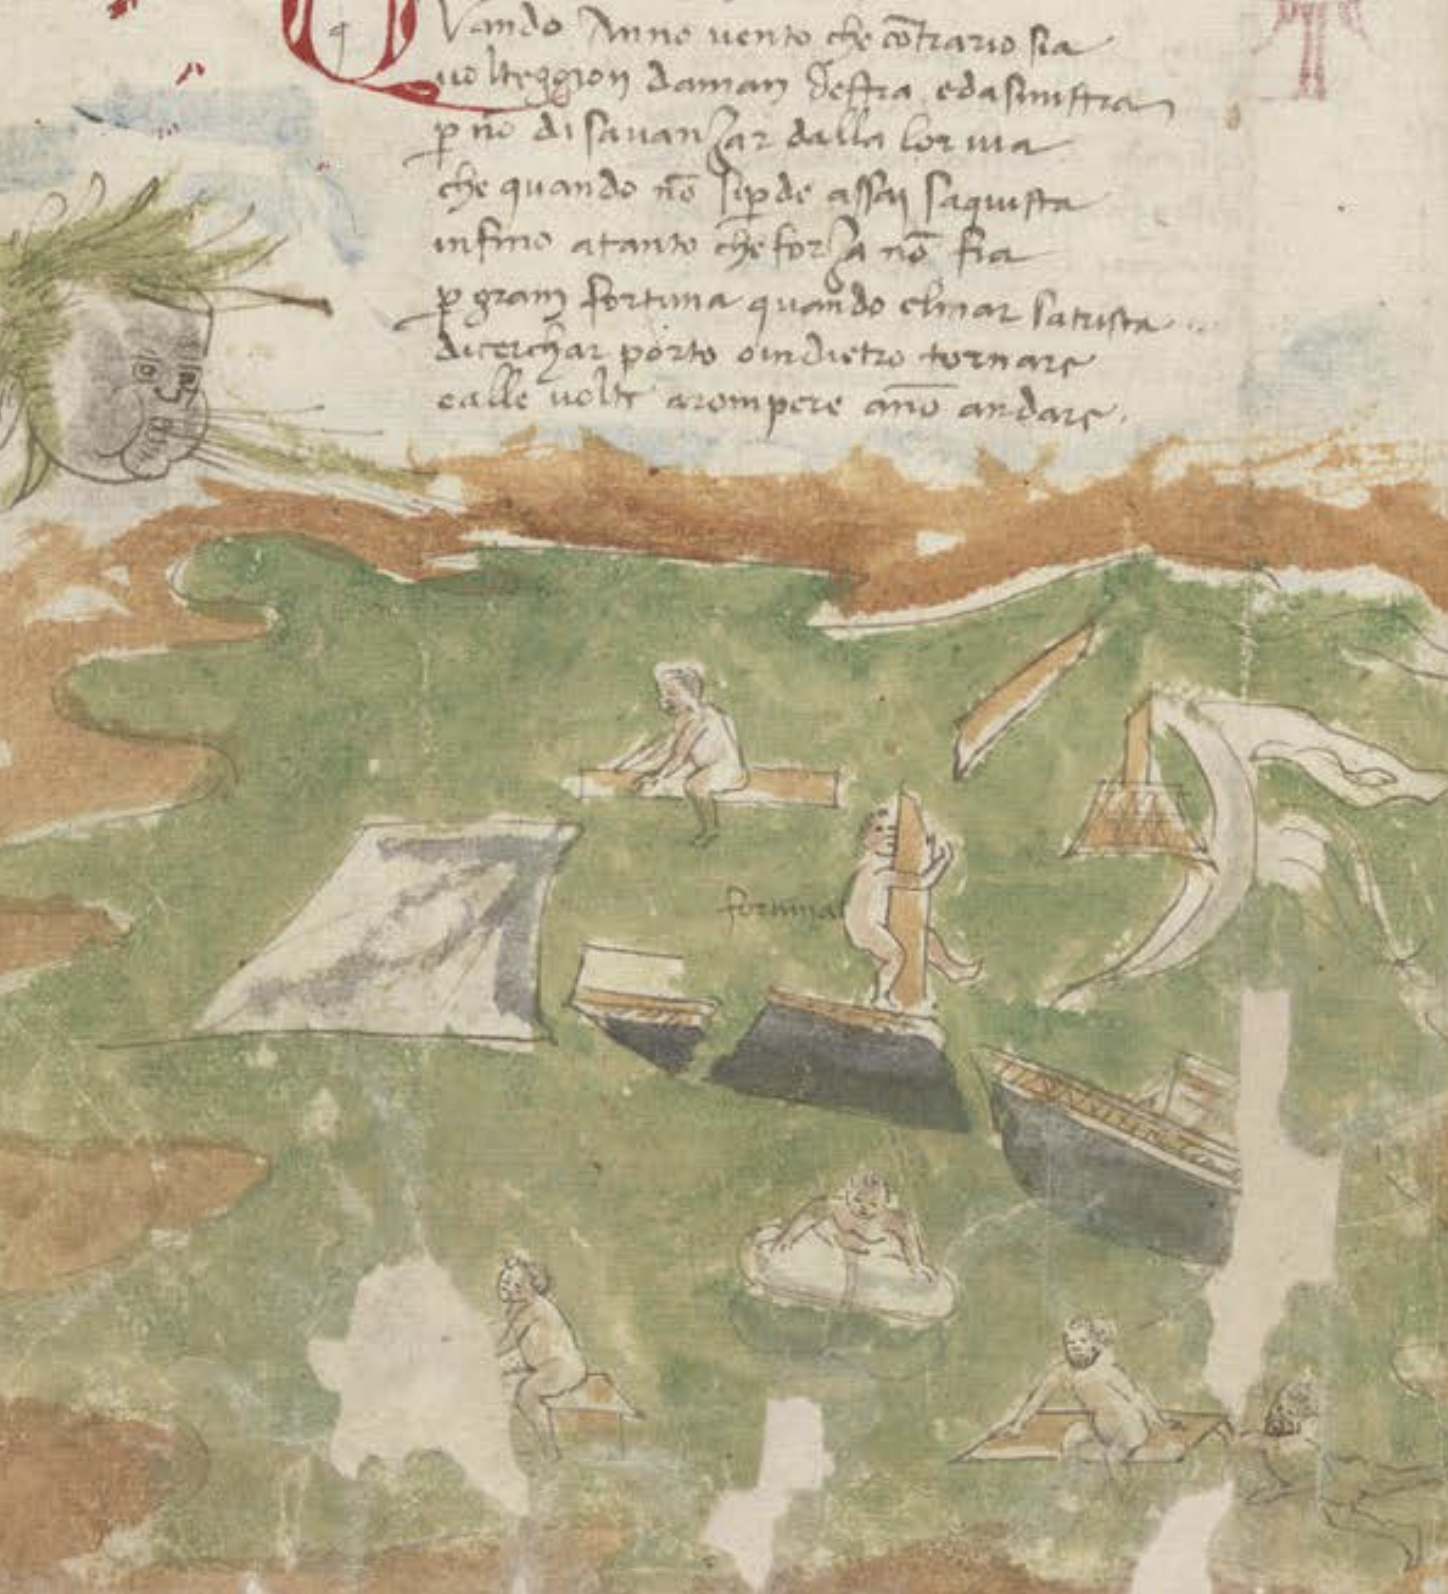 Quando anno uento che cōtrario sia
uolteggion daman destra edasinistra
p nō disauanzar dalla lor uia
che quando nō sipde assai saquista
infino atanto che forza nō fia
p gram fortuna quando elmar satrista
dicerchar porto oindietro tornare
ealle uolte arompere anō andare.
fortuna